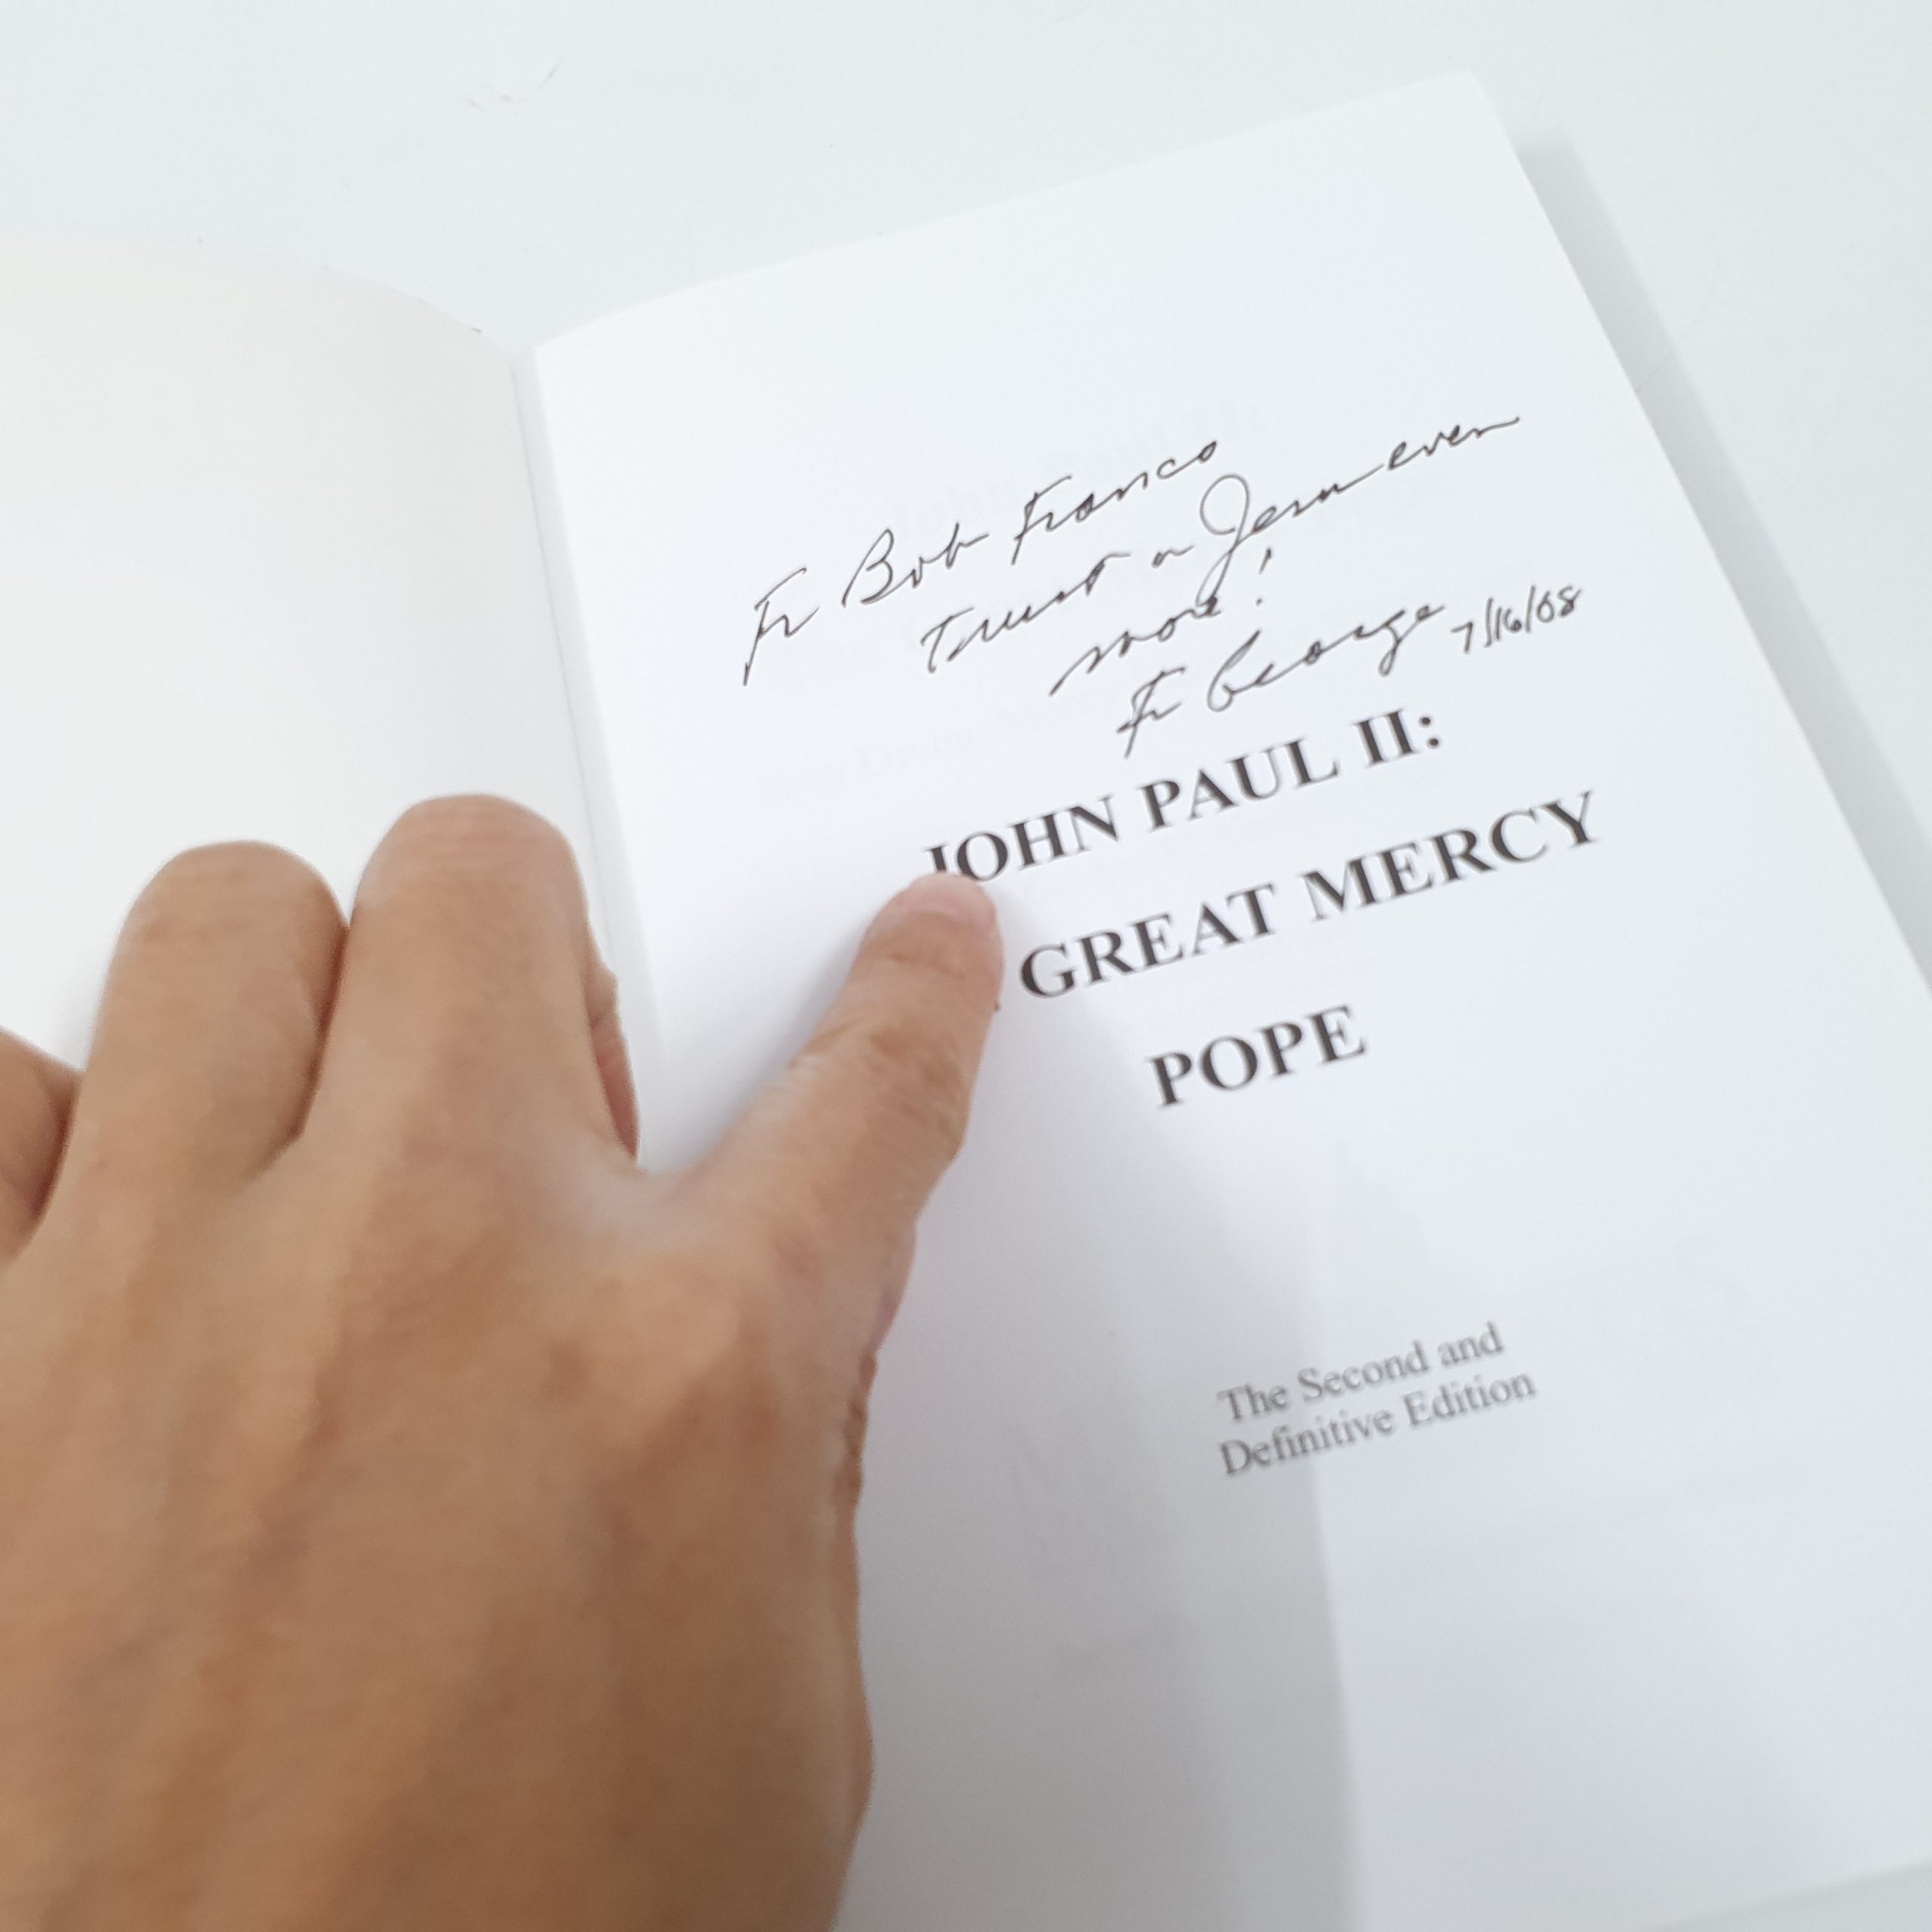 Fr Bob Franco
Trust in Jesus even
more!
Fr George 7/16/08
JOHN PAUL II:
GREAT MERCY
POPE
The Second and
Definitive Edition